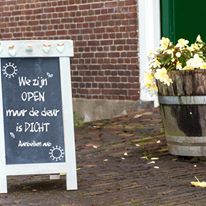 We zijn
OPEN
maar de deur
is DICHT
Aanbellen aub